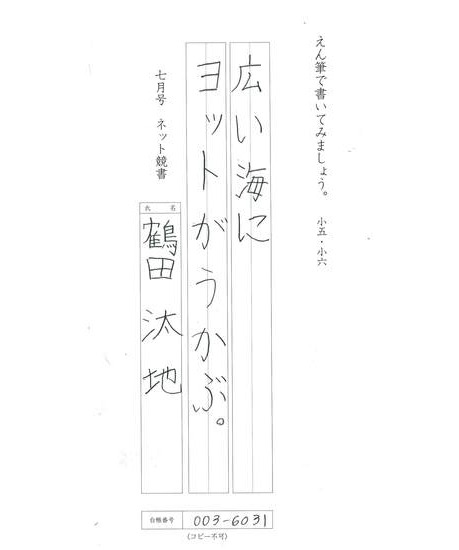 えん筆で書いてみましょう。 小五・小六
広い海に
ヨットがうかぶ。
七月号 ネット競書
氏名
鶴田 汰地
台帳番号 003-6031
(コピー不可)